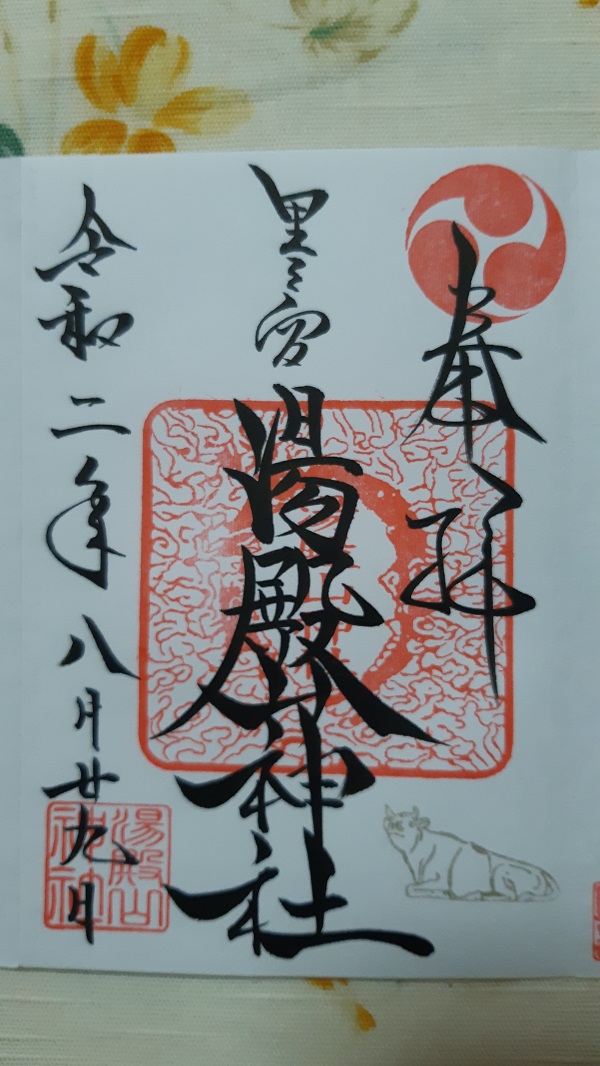 奉拝
里之宮
湯殿山神社
令和二年八月廿九日
湯殿山